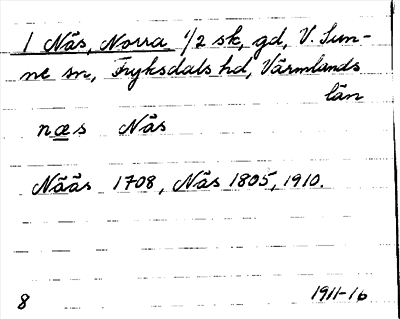 1 Näs, Norra 1/2 sk, gd, V. Sun-
ne sn, Fryksdals hd, Värmlands
län
næs Näs
Nääs 1708, Näs 1805, 1910.
8 1911-16